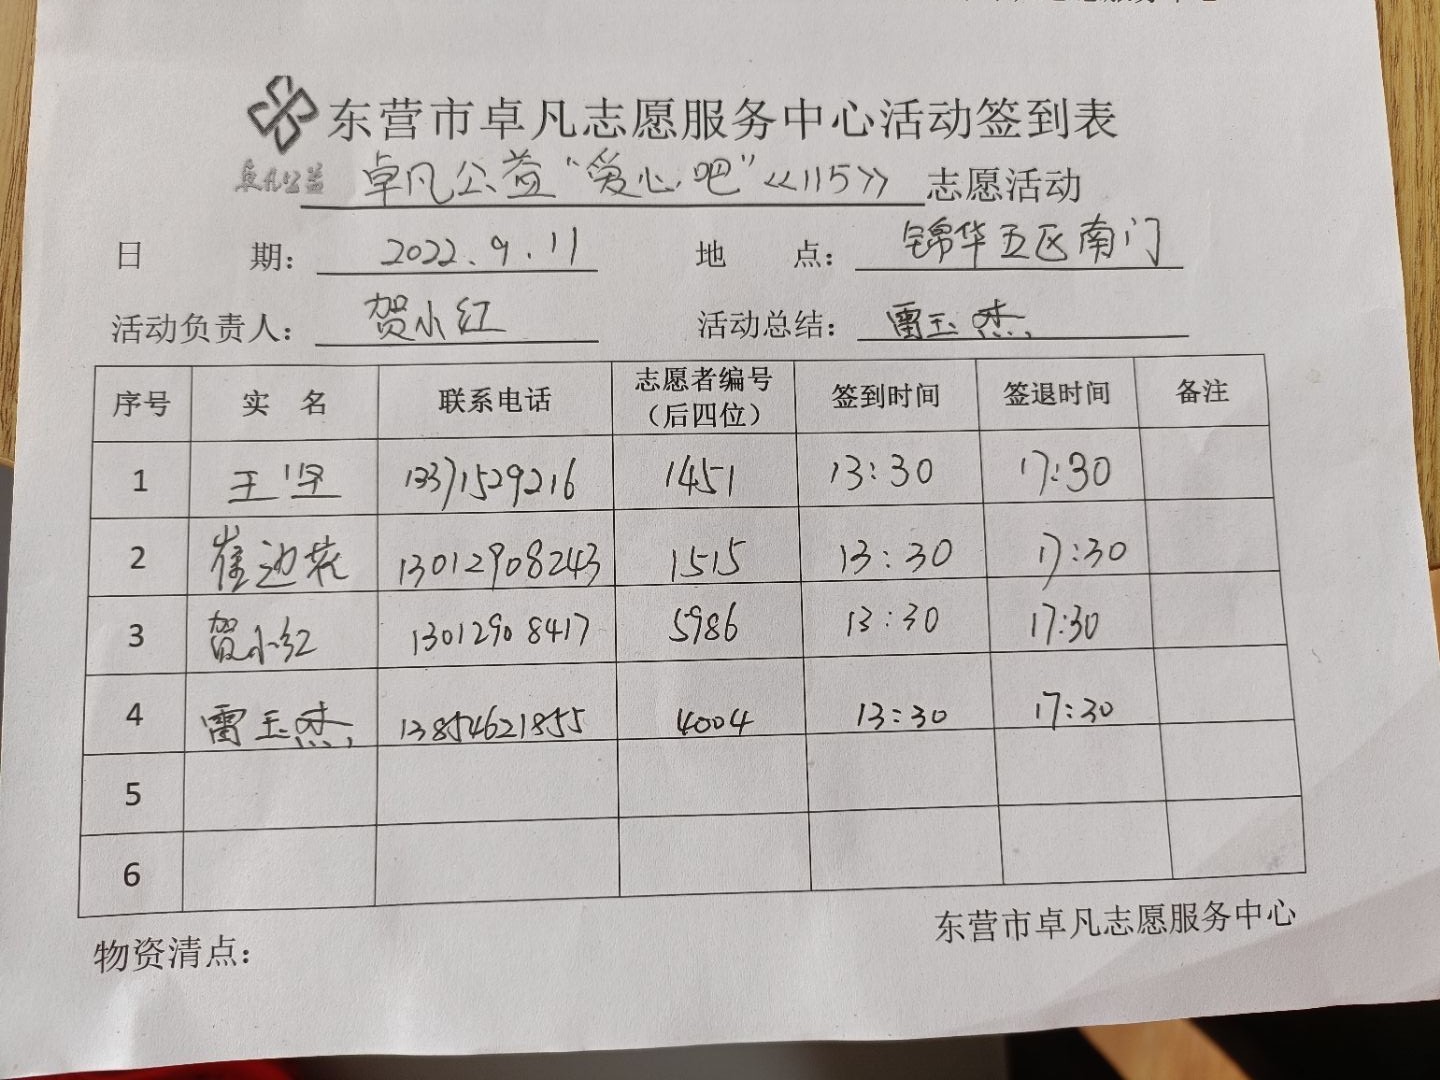 东营市卓凡志愿服务中心活动签到表
卓凡公益
卓凡公益“爱心吧”《115》志愿活动
日 期：2022.9.11 地 点：锦华五区南门
活动负责人：贺小红 活动总结：雷玉杰
序号 实 名 联系电话 志愿者编号（后四位） 签到时间 签退时间 备注
1 王坚 13371529216 1451 13:30 17:30
2 崔边花 13012908243 1515 13:30 17:30
3 贺小红 13012908417 5986 13:30 17:30
4 雷玉杰 13854621855 4004 13:30 17:30
5
6
物资清点：
东营市卓凡志愿服务中心